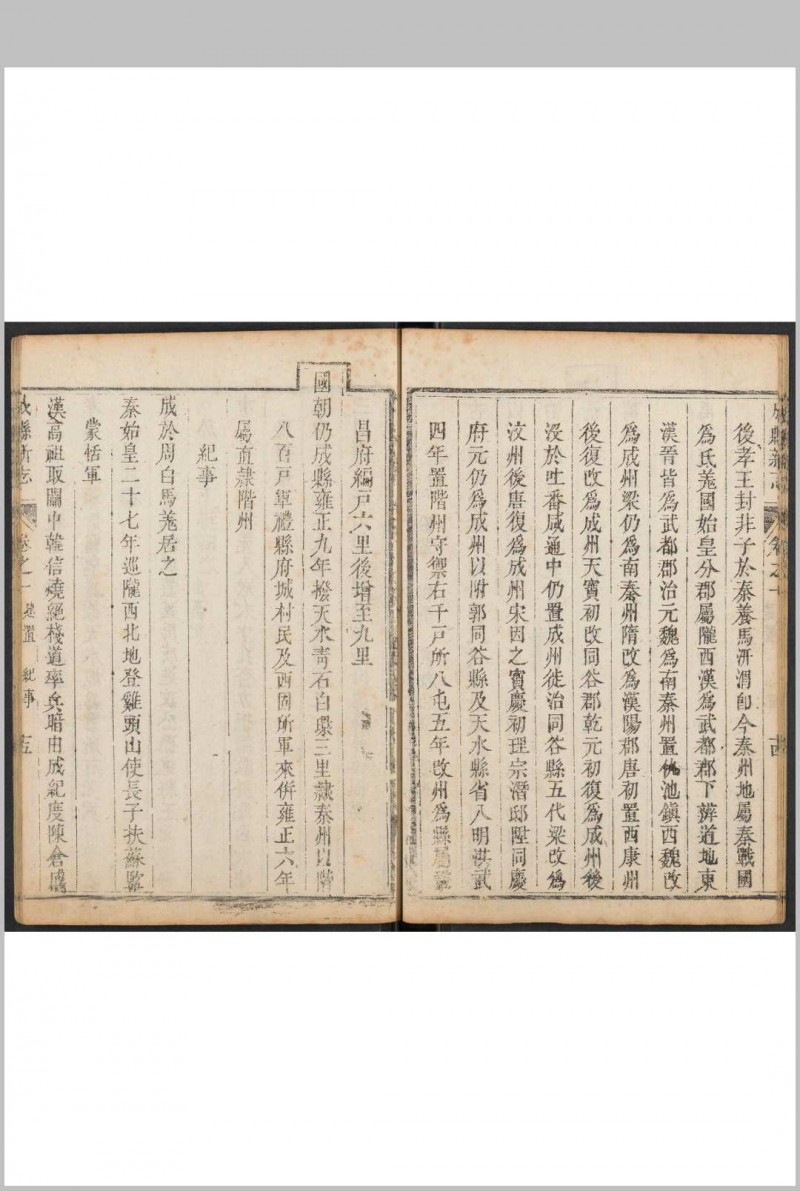 後孝王封非子於秦養馬汧渭即今秦州地屬秦戰國
爲氐羗國始皇分郡屬隴西漢爲武都郡下辨道地東
漢晉皆爲武都郡治元魏爲南秦州置仇池鎮西魏改
爲成州梁仍爲南秦州隋改爲漢陽郡唐初置西康州
後復改爲成州天寳初改同谷郡乾元初復爲成州後
沒於吐番咸通中仍置成州徙治同谷縣五代梁改爲
汶州後唐復爲成州宋因之寳慶初理宗潛邸陞同慶
府元仍爲成州以附郭同谷縣及天水縣省入明洪武
四年置階州守禦右千戸所八屯五年改州爲縣屬鞏
昌府編戸六里後增至九里
國朝仍成縣雍正九年撥天水青石白環三里隸秦州以階
八百戸軍禮縣府城村民及西固所軍來併雍正六年
屬直隸階州
紀事
成於周白馬羗居之
秦始皇二十七年巡隴西北地登雞頭山使長子扶蘇監
蒙恬軍
漢高祖取關中韓信燒絕棧道率兵暗由成紀度陳倉
成縣新志 卷之一 建置 紀事 十五
成縣新志 卷之一 十四